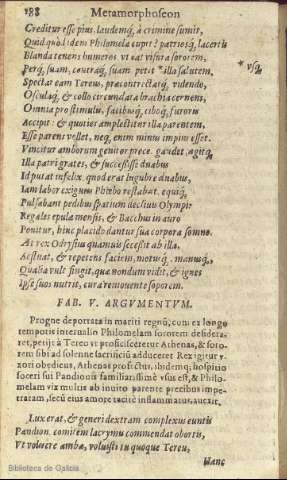 188 Metamorphoseon
Creditur esse pius, laudemq́; à crimine sumit,
Quid quòd idem Philomela cupit? patriosq́; lacertis
Blanda tenens humeros, vt eat visura sororem,
Perq́; suam, contraq́; suam petit *illa salutem,
* vsq́;
Spectat eam Tereus, præcontrectatq́; videndo,
Osculaq́; & collo circundata brachia cernens,
Omnia pro stimulis, facibusq́; ciboq́; furoris
Accipit: & quoties amplectitur illa parentem,
Esse parens vellet, neq; enim minus impius esset.
Vincitur amborum genitor prece. gaudet, agitq́;
Illa patri grates, & successisse duabus
Id putat infelix, quod erat lugubre duabus,
Iam labor exiguus Phœbo restabat. equiq́;
Pulsabant pedibus spatium decliuis Olympi:
Regales epulæ mensis, & Bacchus in auro
Ponitur, hinc placido dantur sua corpora somno.
At rex Odrysius quamuis secessit ab illa,
Aestuat, & repetens faciem, motusq́; manusq́;
Qualia vult fingit, quæ nondum vidit, & ignes
Ipse suos nutrit, cura remouente soporem.
FAB. V. ARGVMENTVM.
Progne deportata in mariti regnũ, cum ex longo
temporis interuallo Philomelam sororem desidera-
ret, petijt à Tereo vt proficisceretur Athenas, & soro-
rem sibi ad solenne sacrificiũ adduceret Rex igitur v-
xori obedicus, Athenas profectus, ibidemq; hospitio
soceri sui Pandionis familiarissimè vsus est, & Philo-
melam vix multis ab inuito parente precibus impe-
tratam, secũ eius amore tacitè inflammatus, auexit.
Lux erat, & generi dextram complexus euntis
Pandion. comitem lacrymis commendat obortis,
Vt voluere ambæ, voluisti tu quoque Tereu,
Hanc
Biblioteca de Galicia